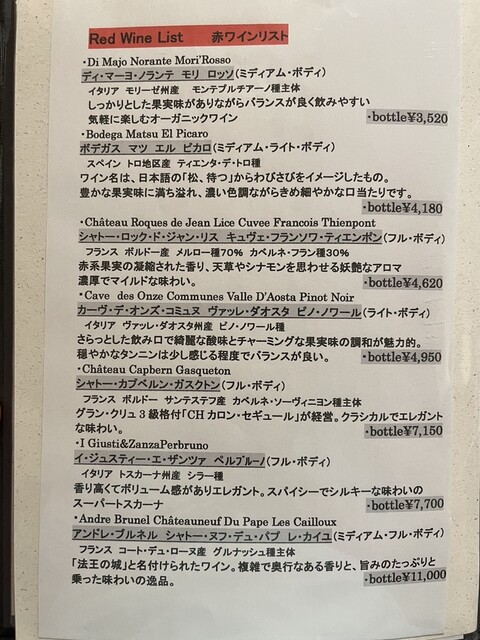 Red Wine List　赤ワインリスト
・Di Majo Norante Mori'Rosso
ディ・マーヨ・ノランテ モリ ロッソ(ミディアム・ボディ)
イタリア モリーゼ州産　モンテプルチアーノ種主体
しっかりとした果実味がありながらバランスが良く飲みやすい
気軽に楽しむオーガニックワイン
・bottle¥3,520
・Bodega Matsu El Picaro
ボデガス マツ エル ピカロ(ミディアム・ライト・ボディ)
スペイン トロ地区産 ティエンタ・デ・トロ種
ワイン名は、日本語の「松、待つ」からわびさびをイメージしたもの。
豊かな果実味に満ち溢れ、濃い色調ながらきめ細やかな口当たりです。
・bottle¥4,180
・Château Roques de Jean Lice Cuvee Francois Thienpont
シャトー・ロック・ド・ジャン・リス キュヴェ・フランソワ・ティエンポン(フル・ボディ)
フランス ボルドー産 メルロー種70% カベルネ・フラン種30%
赤系果実の凝縮された香り、天草やシナモンを思わせる妖艶なアロマ
濃厚でマイルドな味わい。
・bottle¥4,620
・Cave des Onze Communes Valle D'Aosta Pinot Noir
カーヴ・デ・オンズ・コミュヌ ヴァッレ・ダオスタ ピノ・ノワール(ライト・ボディ)
イタリア ヴァッレ・ダオスタ州産 ピノ・ノワール種
さらっとした飲み口で綺麗な酸味とチャーミングな果実味の調和が魅力的。
穏やかなタンニンは少し感じる程度でバランスが良い。
・bottle¥4,950
・Château Capbern Gasqueton
シャトー・カプベルン・ガスクトン(フル・ボディ)
フランス ボルドー サンテステフ産 カベルネ・ソーヴィニヨン種主体
グラン・クリュ３級格付「CH カロン・セギュール」が経営。クラシカルでエレガント
な味わい。
・bottle¥7,150
・I Giusti&ZanzaPerbruno
イ・ジュスティー・エ・ザンツァ ペルブルーノ(フル・ボディ)
イタリア トスカーナ州産 シラー種
香り高くてボリューム感がありエレガント。スパイシーでシルキーな味わいの
スーパートスカーナ
・bottle¥7,700
・Andre Brunel Châteauneuf Du Pape Les Cailloux
アンドレ・ブルネル シャトー・ヌフ・デュ・パプ レ・カイユ(ミディアム・フル・ボディ)
フランス コート・デュ・ローヌ産 グルナッシュ種主体
「法王の城」と名付けられたワイン。複雑で奥行なある香りと、旨みのたっぷりと
乗った味わいの逸品。
・bottle¥11,000